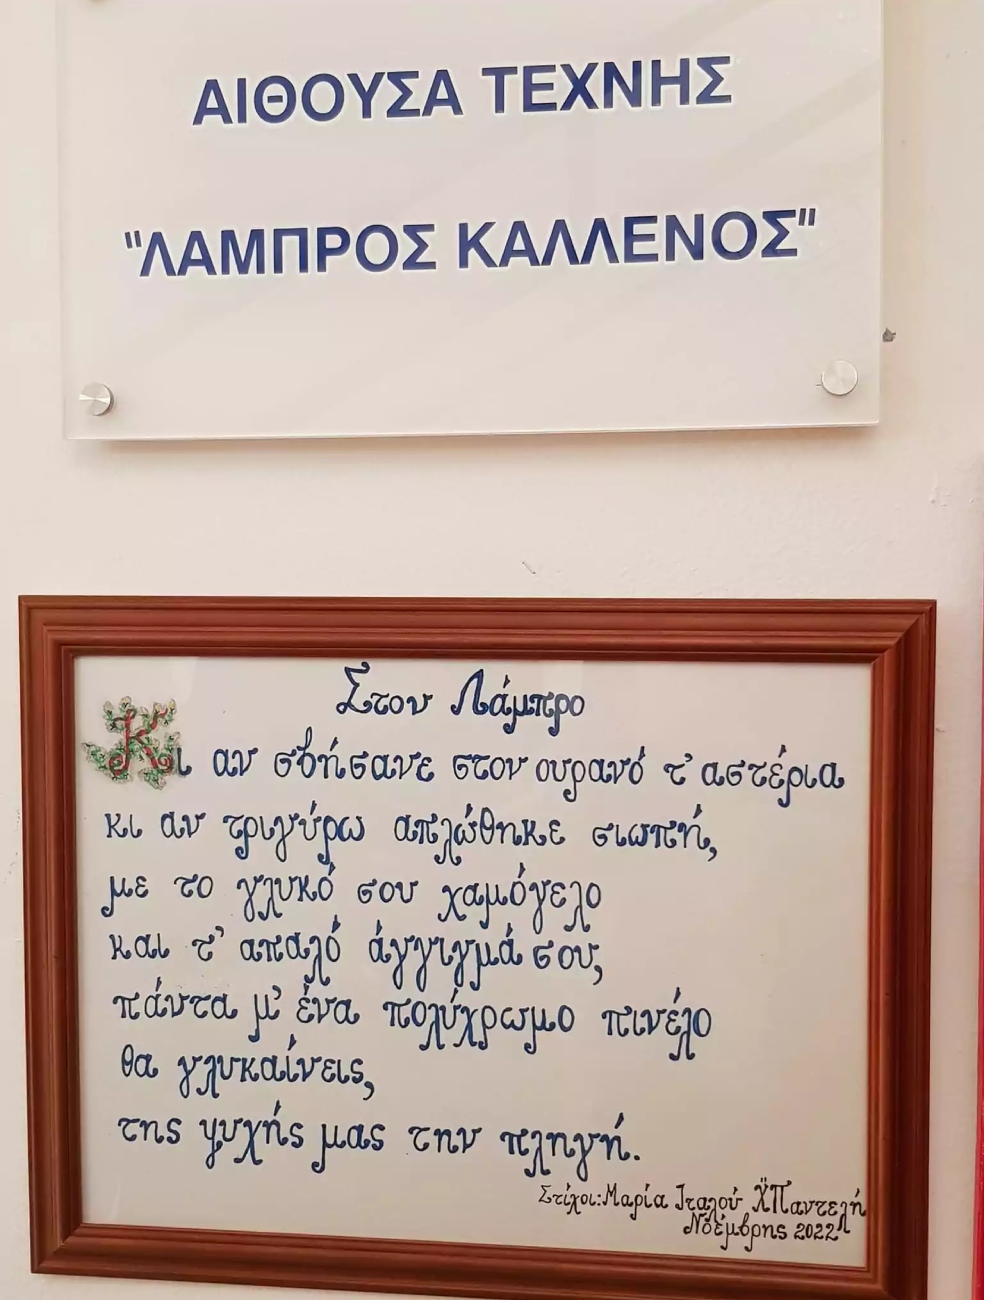 ΑΙΘΟΥΣΑ ΤΕΧΝΗΣ
"ΛΑΜΠΡΟΣ ΚΑΛΛΕΝΟΣ"
Στον Λάμπρο
Κι αν σβήσανε στον ουρανό τ' αστέρια
κι αν τριγύρω απλώθηκε σιωπή,
με το γλυκό σου χαμόγελο
και τ' απαλό άγγιγμά σου,
πάντα μ' ένα πολύχρωμο πινέλο
θα γλυκαίνεις,
της ψυχής μας την πληγή.
Στίχοι: Μαρία Ιταλού Χ̈Παντελή
Νοέμβρης 2022